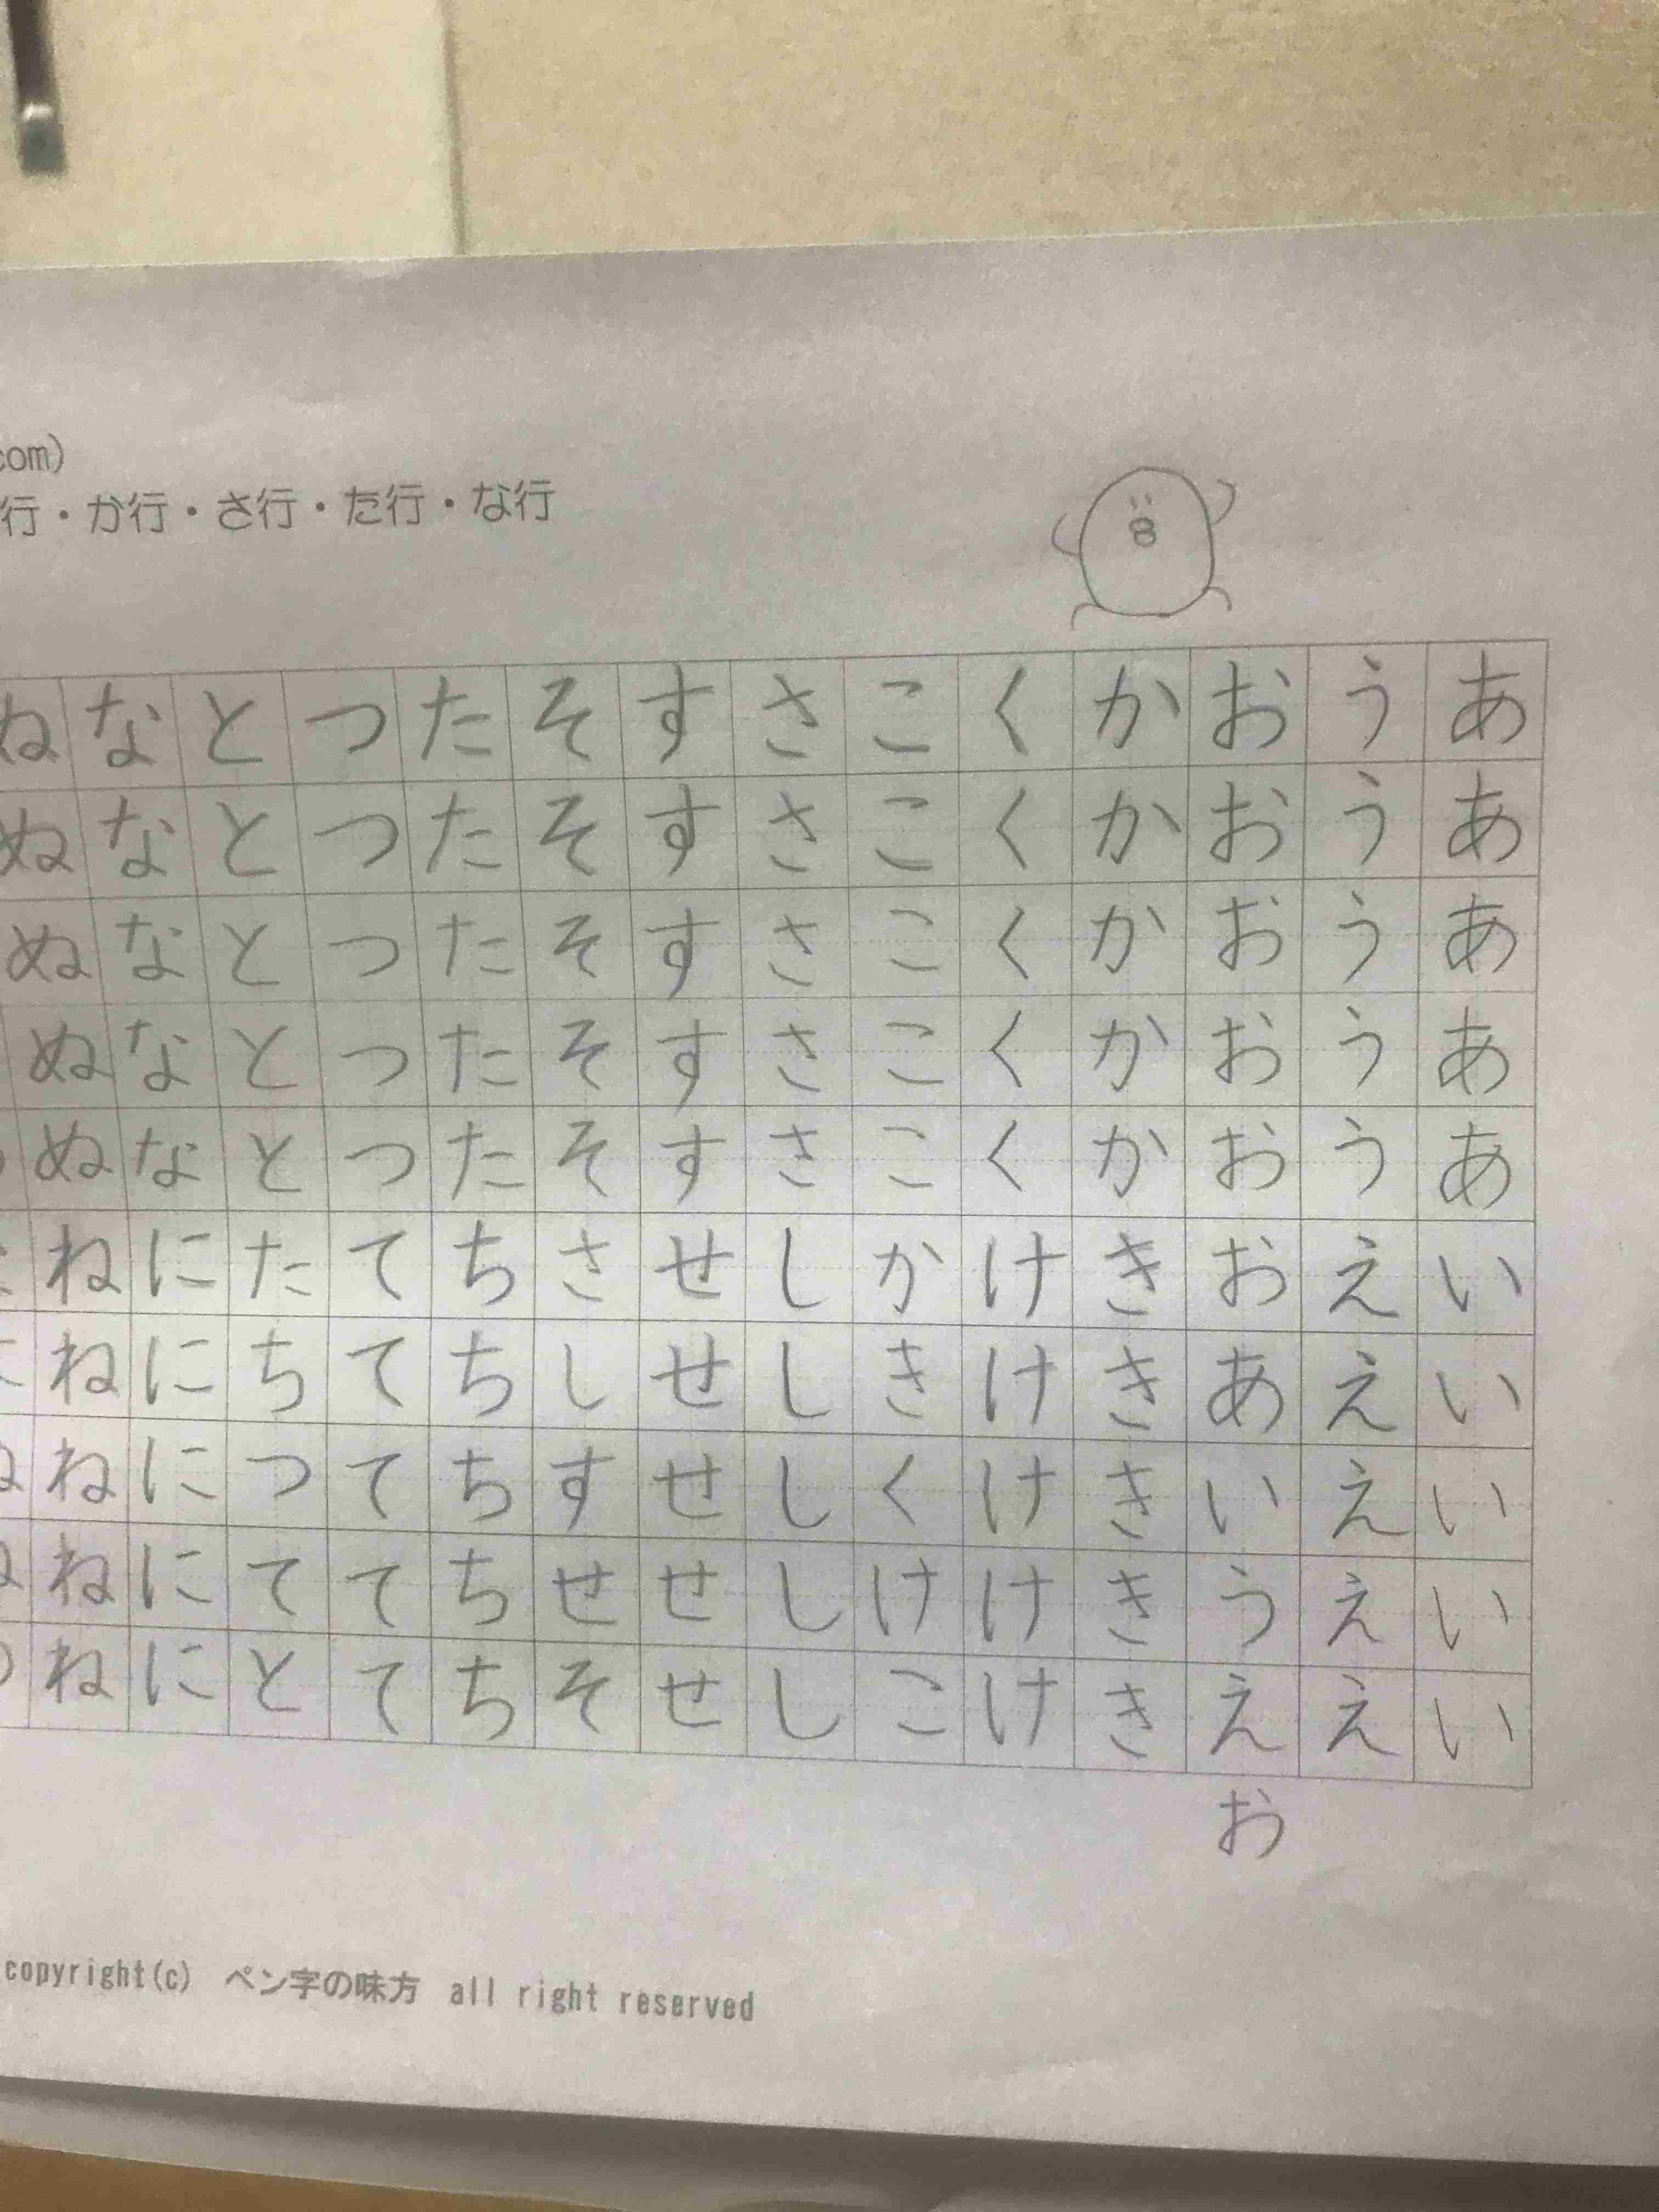 com)
行・か行・さ行・た行・な行
あああああいいいいい
うううううえええええ
おおおおおおあいうえお
かかかかかききききき
くくくくくけけけけけ
こここここかきくけこ
さささささししししし
すすすすすせせせせせ
そそそそそさしすせそ
たたたたたちちちちち
つつつつつててててて
とととととたちつてと
なななななににににに
ねぬぬぬぬねねねねね
copyright(c) ペン字の味方 all right reserved